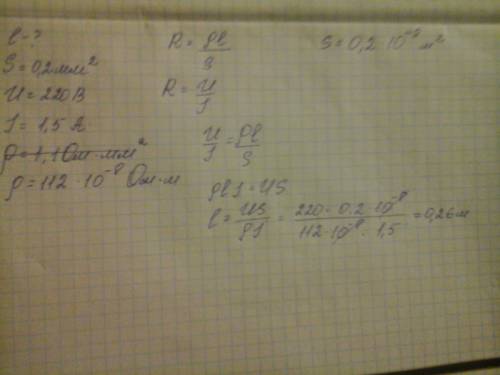 l - ?
S = 0,2 мм²
U = 220 В
I = 1,5 А
ρ = 1,1 Ом · мм²
ρ = 112 · 10⁻⁸ Ом · м
R = ρl/S
R = U/I
U/I = ρl/S
ρlI = US
l = US/ρI = 220 · 0,2 · 10⁻⁸/112 · 10⁻⁸ · 1,5 = 0,26 м
S = 0,2 · 10⁻⁸ м²